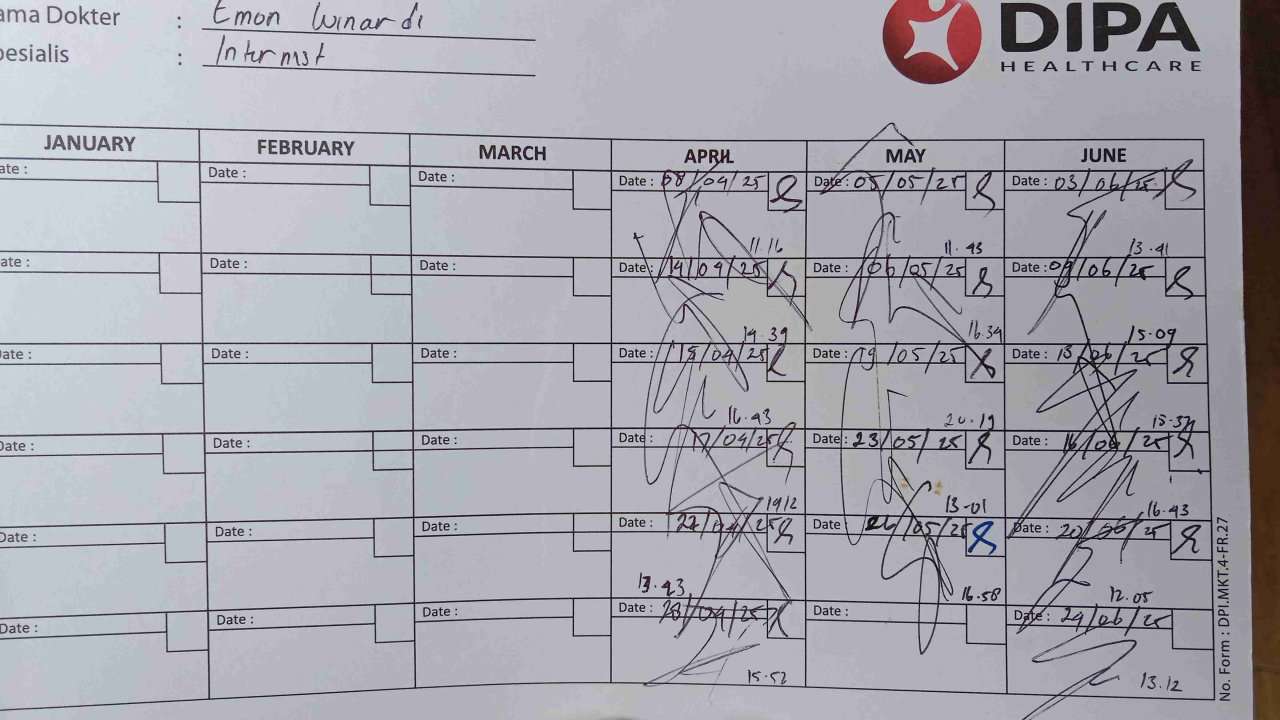 ama Dokter : Emon Winardi
pesialis : Internist
DIPA
HEALTHCARE
JANUARY FEBRUARY MARCH APRIL MAY JUNE
ate : Date : Date : Date : 08/04/25 Date : 05/05/25 Date : 03/06/25
11.16 11.43 13.41
ate : Date : Date : Date : 14/04/25 Date : 06/05/25 Date : 09/06/25
14.39 16.34 15.09
Date : Date : Date : Date : 15/04/25 Date : 19/05/25 Date : 13/06/25
16.43 20.19 15.37
Date : Date : Date : Date : 17/04/25 Date : 23/05/25 Date : 16/06/25
1912 13-01 16.43
Date : Date : Date : Date : 22/04/25 Date : 26/05/25 Date : 20/06/25
13.43 16.58 12.05
Date : Date : Date : Date : 28/04/25 Date : Date : 24/06/25
15.52 13.12
No. Form : DPI.MKT.4-FR.27